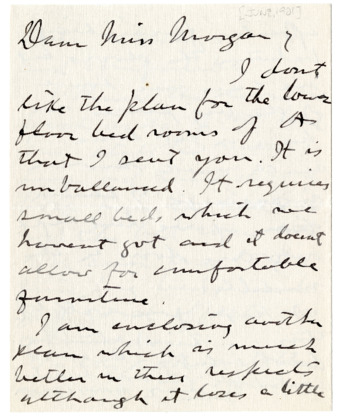 [JUNE, 1921]
Dear Miss Morgan,
I dont
like the plan for the lower
floor bed rooms of A
that I sent you. It is
unballanced. It requires
small beds which we
havent got and it doesnt
allow for comfortable
furniture.
I am enclosing another
plan which is much
better in these respects
although it loses a little